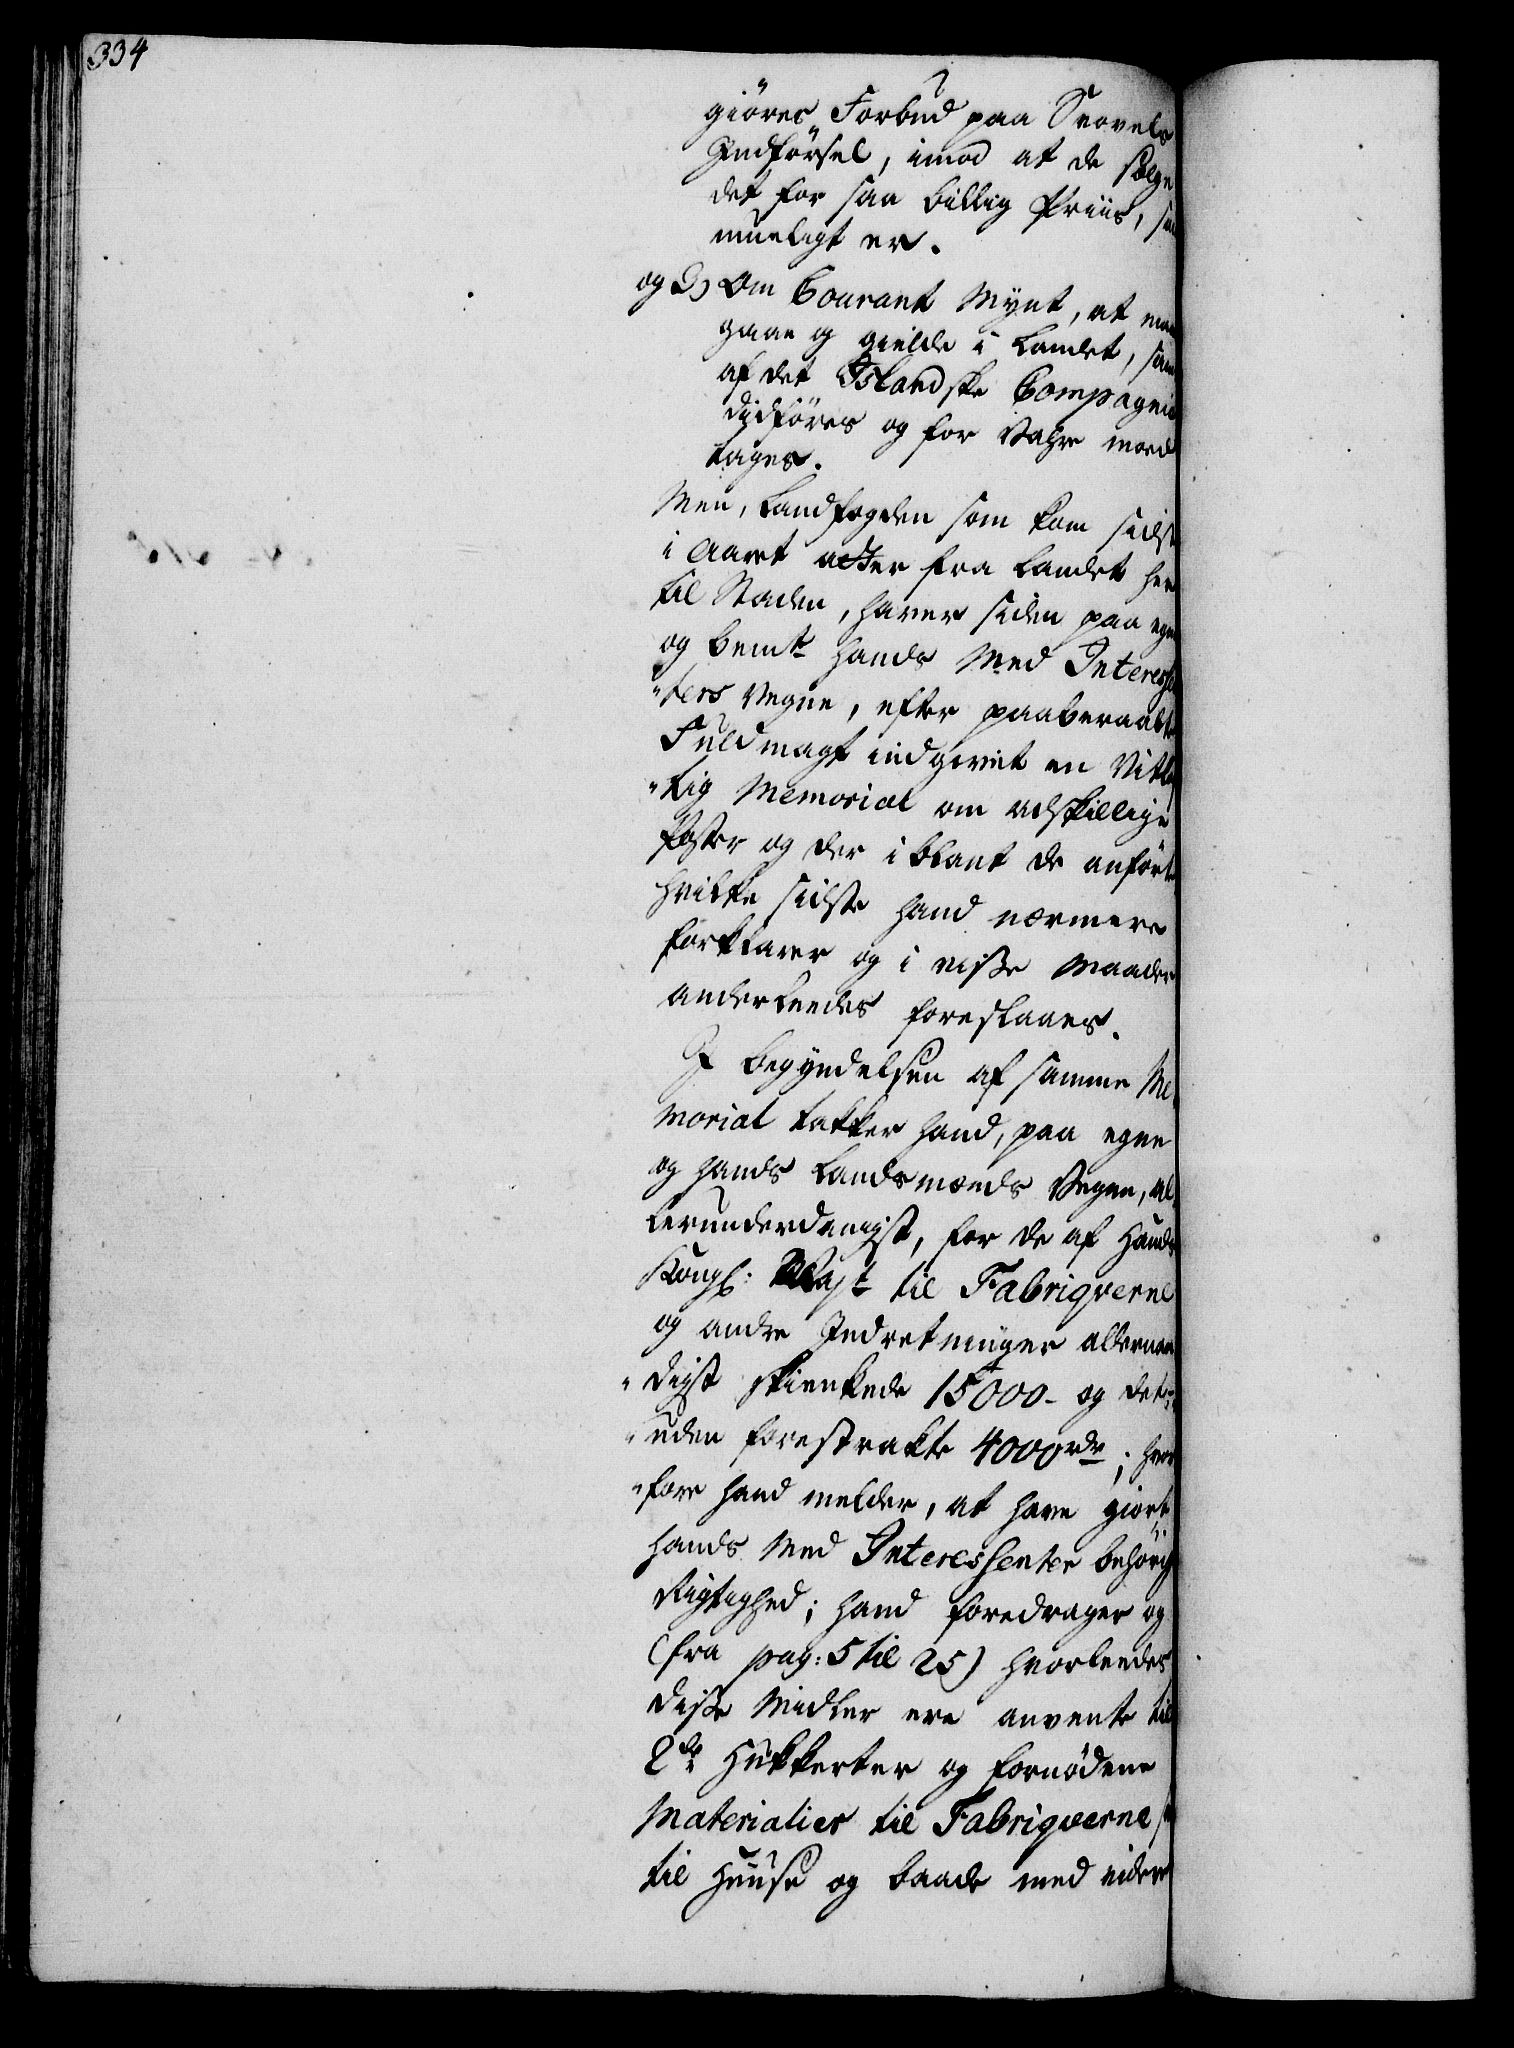 334
giöres Forbud paa Svovels
Indförsel, imod at de sælge
det for saa billig Priis, som
mueligt er.
og D) Om Courant Mynt, at maae
gaae og gielde i Landet, samt
af det Islandske Compagnie
didföres og for Vahre mod
tages.
Men, Landfogden som kom sidst
i Aaret atter fra Landet her
til Staden, haver siden paa egne
og bemte hands Med Interessen
"ters Vegne, efter paaberaabte
Fuldmagt indgivet en Vitløf
"tig Memorial om adskillige
Poster og der iblant de anförte
hvilke sidste hand nærmere
forklarer og i visse Maader
anderleedes foreslaaes.
I begyndelsen af samme Me,
morial takker hand, paa egne
og hands Landsmænds Vegne, al,
lerunderdanigst, for de af Hands
Kongl: Mayt til Fabriqverne
og andre Indretninger allernaa
"digst skienkede 15000 - og des-
"uden forestrakte 4000 rdr; hvor
"fore hand melder, at have giort
hands Med Interessenter behörig
Rigtighed; hand foredrager og
(fra pag: 5 til 25) hvorleedes
disse Midler ere anvente til
2de Hukkerter og fornödene
Materialier til Fabriqverne
til Huuse og baade med videre